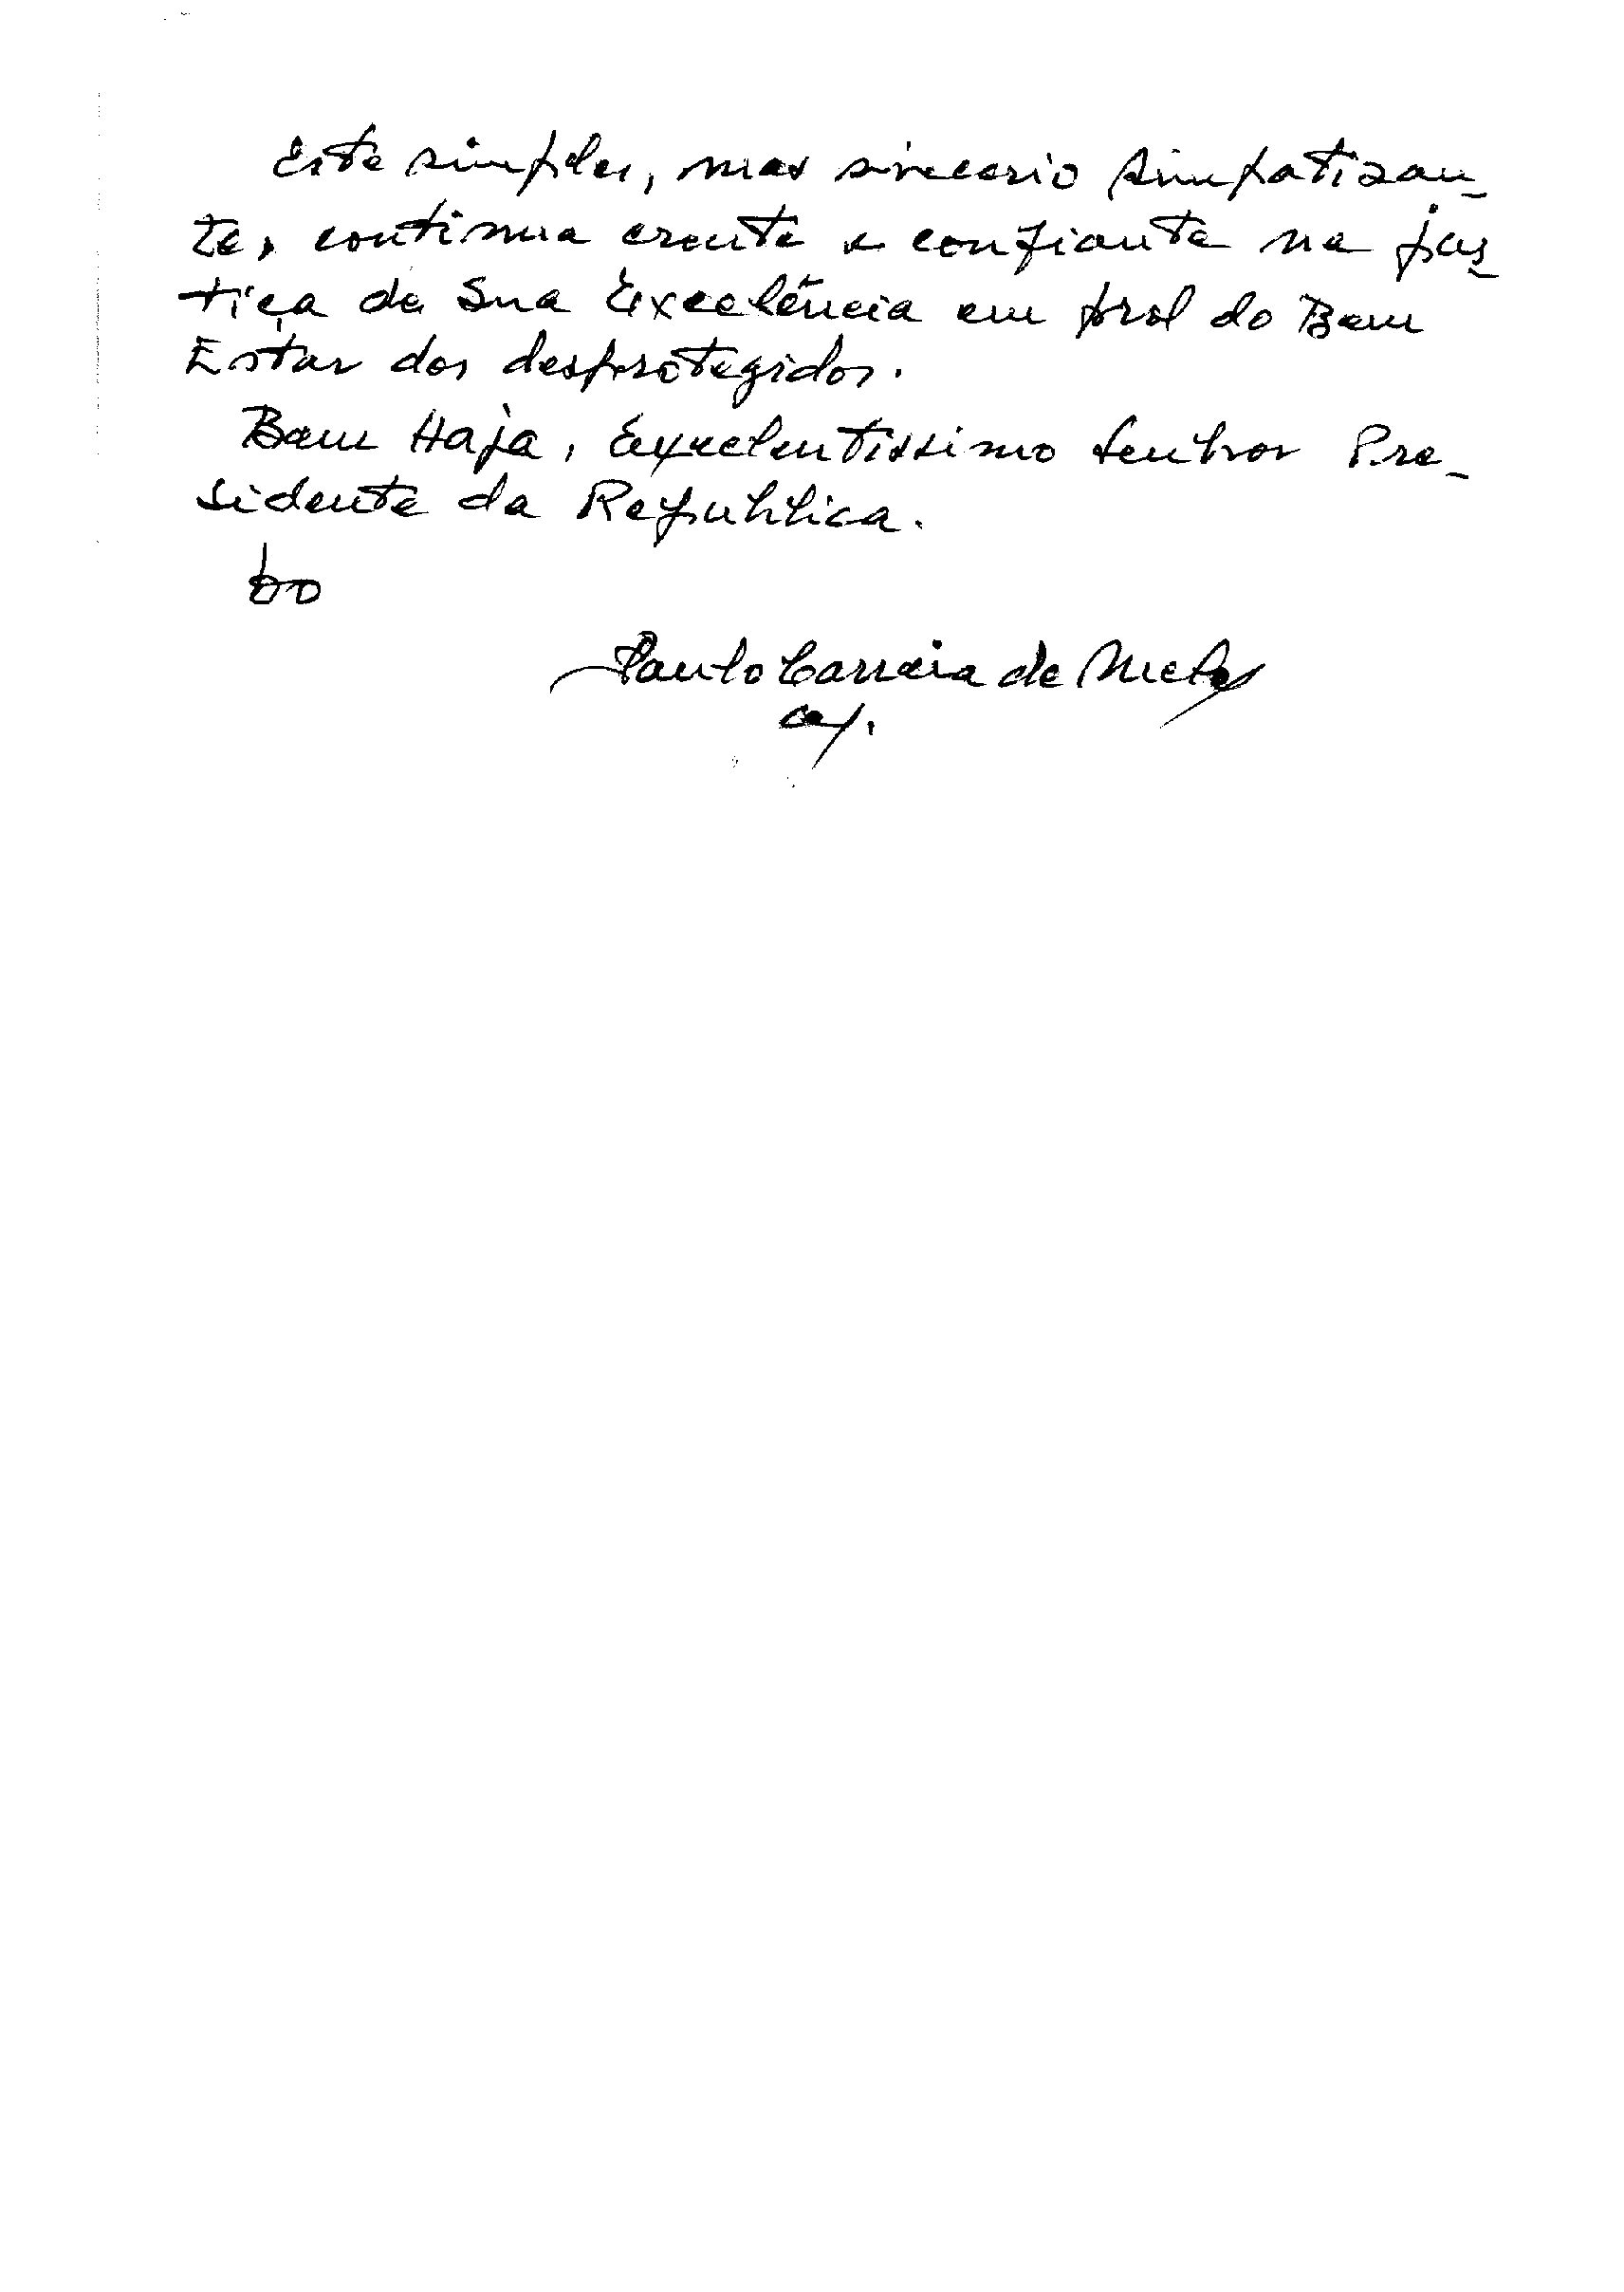 Este simples, mas sincero simpatizan-
te, continua crente e confiante na jus-
tiça de Sua Excelência em prol do Bem
Estar dos desprotegidos.
Bem Haja, Excelentissimo Senhor Pre-
sidente da Republica.
Paulo Correia de Melo